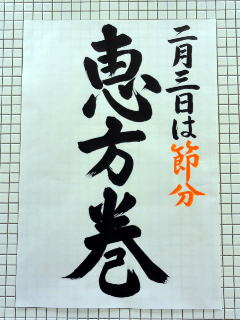 二月三日は節分
恵方巻